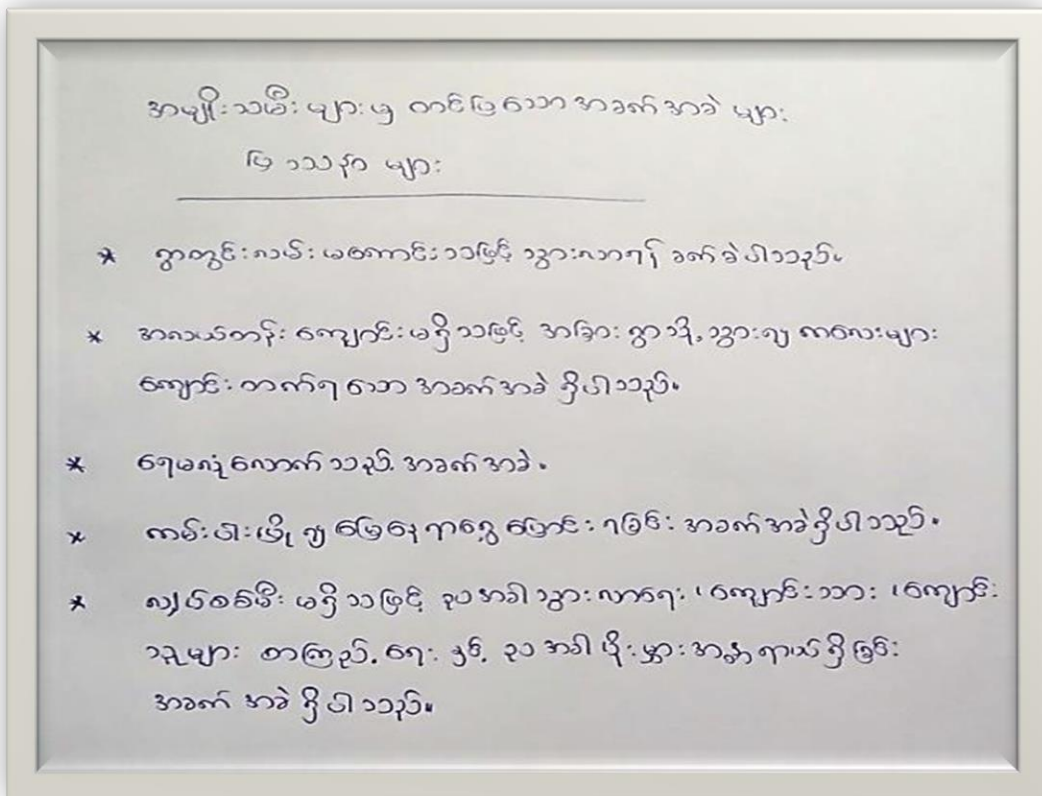 အမျိုးသမီးများမှ တင်ပြသောအခက်အခဲများ
ပြဿနာများ
* ရွာတွင်းလမ်းမကောင်းသဖြင့် သွားလာရန် ခက်ခဲပါသည်။
* အလယ်တန်းကျောင်းမရှိသဖြင့် အခြားရွာသို့သွား၍ ကလေးများ
ကျောင်းတက်ရသောအခက်အခဲရှိပါသည်။
* ရေမလုံလောက်သည့် အခက်အခဲ။
* ကမ်းပါးပြို၍ မြေနေရာရွှေ့ပြောင်းရခြင်း အခက်အခဲရှိပါသည်။
* လျှပ်စစ်မီးမရှိသဖြင့် ညအခါသွားလာရေး၊ ကျောင်းသား၊ ကျောင်း
သူများ စာကြည့်ရေးနှင့် ညအခါပိုးမွှားအန္တရာယ်ရှိခြင်း
အခက်အခဲရှိပါသည်။